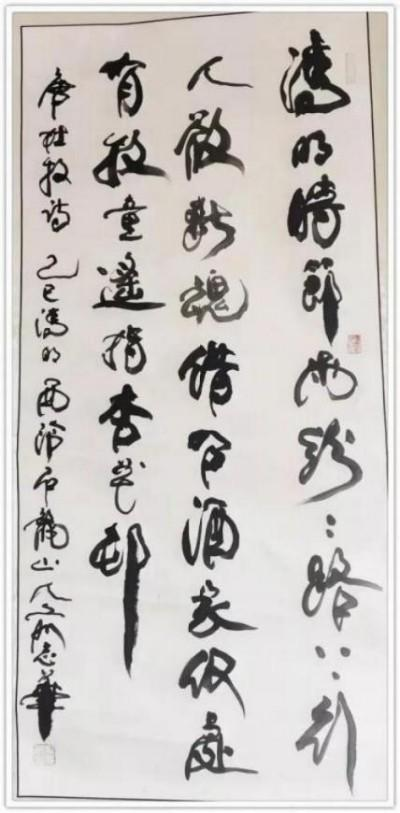 清明時節雨紛〻路上行
人欲斷魂借問酒家何處
有牧童遙指杏花邨
唐杜牧詩 乙巳清明 山人 志華